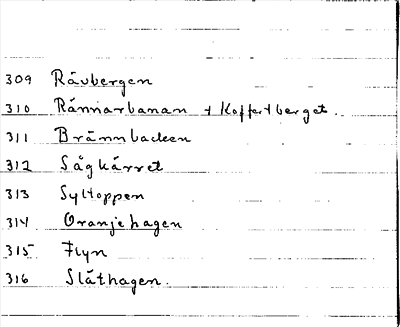 309 Rävbergen
310 Rännarbanan + Koffertberget
311 Brännbacken
312 Sågkärret
313 Syltoppen
314 Oranjehagen
315 Flyn
316 Slåthagen.